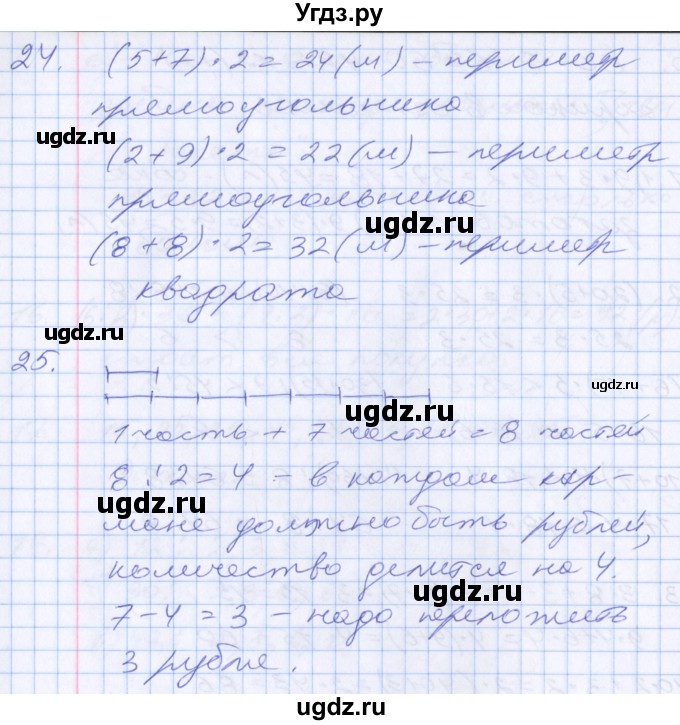 Угдз.ру
24. (5+7)·2=24(м) – пеример
прямоугольника
ugdz.ru
ugdz.ru
(2+9)·2=22(м) – периметр
прямоугольника
ugdz.ru
(8+8)·2=32(м) – пеример
квадрата
ugdz.ru
25.
ugdz.ru
ugdz.ru
1 часть + 7 частей = 8 частей
8:2=4 – в каждом кар-
ugdz.ru
мане должно быть рублей,
количество делится на 4.
ugdz.ru
7-4=3 – надо переложить
3 рубле.
ugdz.ru